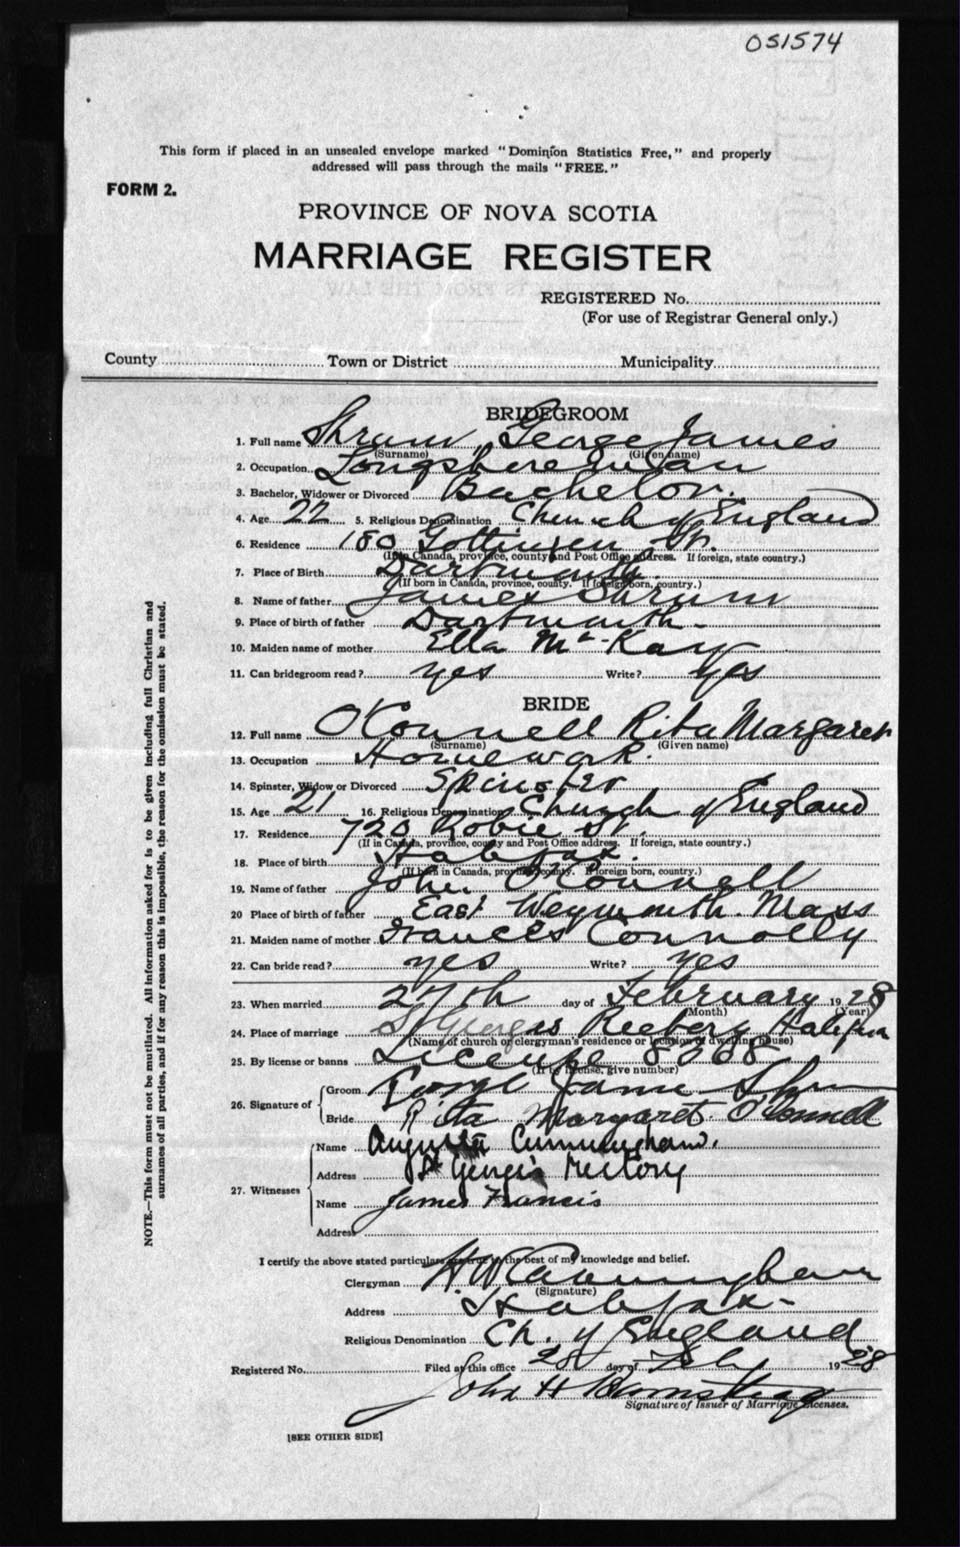 OS1574
This form if placed in an unsealed envelope marked "Dominion Statistics Free," and properly
addressed will pass through the mails "FREE."
FORM 2.
PROVINCE OF NOVA SCOTIA
MARRIAGE REGISTER
REGISTERED No.
(For use of Registrar General only.)
County Town or District Municipality
BRIDEGROOM
1. Full name Shrum, George James
(Surname) (Given name)
2. Occupation Longshoreman
3. Bachelor, Widower or Divorced Bachelor.
4. Age 22 5. Religious Denomination Church of England
6. Residence 180 Gottingen St.
(If in Canada, province, county and Post Office address. If foreign, state country.)
7. Place of Birth Dartmouth
(If born in Canada, province, county. If foreign born, country.)
8. Name of father James Shrum
9. Place of birth of father Dartmouth
10. Maiden name of mother Ella McKay
11. Can bridegroom read? yes Write? yes
BRIDE
12. Full name O'Connell Rita Margaret
(Surname) (Given name)
13. Occupation Homework.
14. Spinster, Widow or Divorced Spinster
15. Age 21 16. Religious Denomination Church of England
17. Residence 720 Robie St.
(If in Canada, province, county and Post Office address. If foreign, state country.)
18. Place of birth Halifax.
(If born in Canada, province, county. If foreign born, country.)
19. Name of father John O'Connell
20 Place of birth of father East Weymouth. Mass
21. Maiden name of mother Frances Connolly
22. Can bride read? yes Write? yes
23. When married 27th day of February 1928
(Month) (Year)
24. Place of marriage St Georges Rectory Halifax
(Name of church or clergyman's residence or location of dwelling house)
25. By license or banns License 8068
(If by license, give number)
26. Signature of Groom George James Shrum
Bride Rita Margaret O'Connell
27. Witnesses Name Augusta Cunningham.
Address St George's Rectory
Name James Francis
Address
I certify the above stated particulars are true to the best of my knowledge and belief.
Clergyman H. W. Cunningham
(Signature)
Address Halifax -
Religious Denomination Ch. of England
Registered No. Filed at this office 28 day of Feb 1928
John H
Signature of Issuer of Marriage Licenses.
[SEE OTHER SIDE]
NOTE.—This form must not be mutilated. All information asked for is to be given including full Christian and
surnames of all parties, and if for any reason this is impossible, the reason for the omission must be stated.